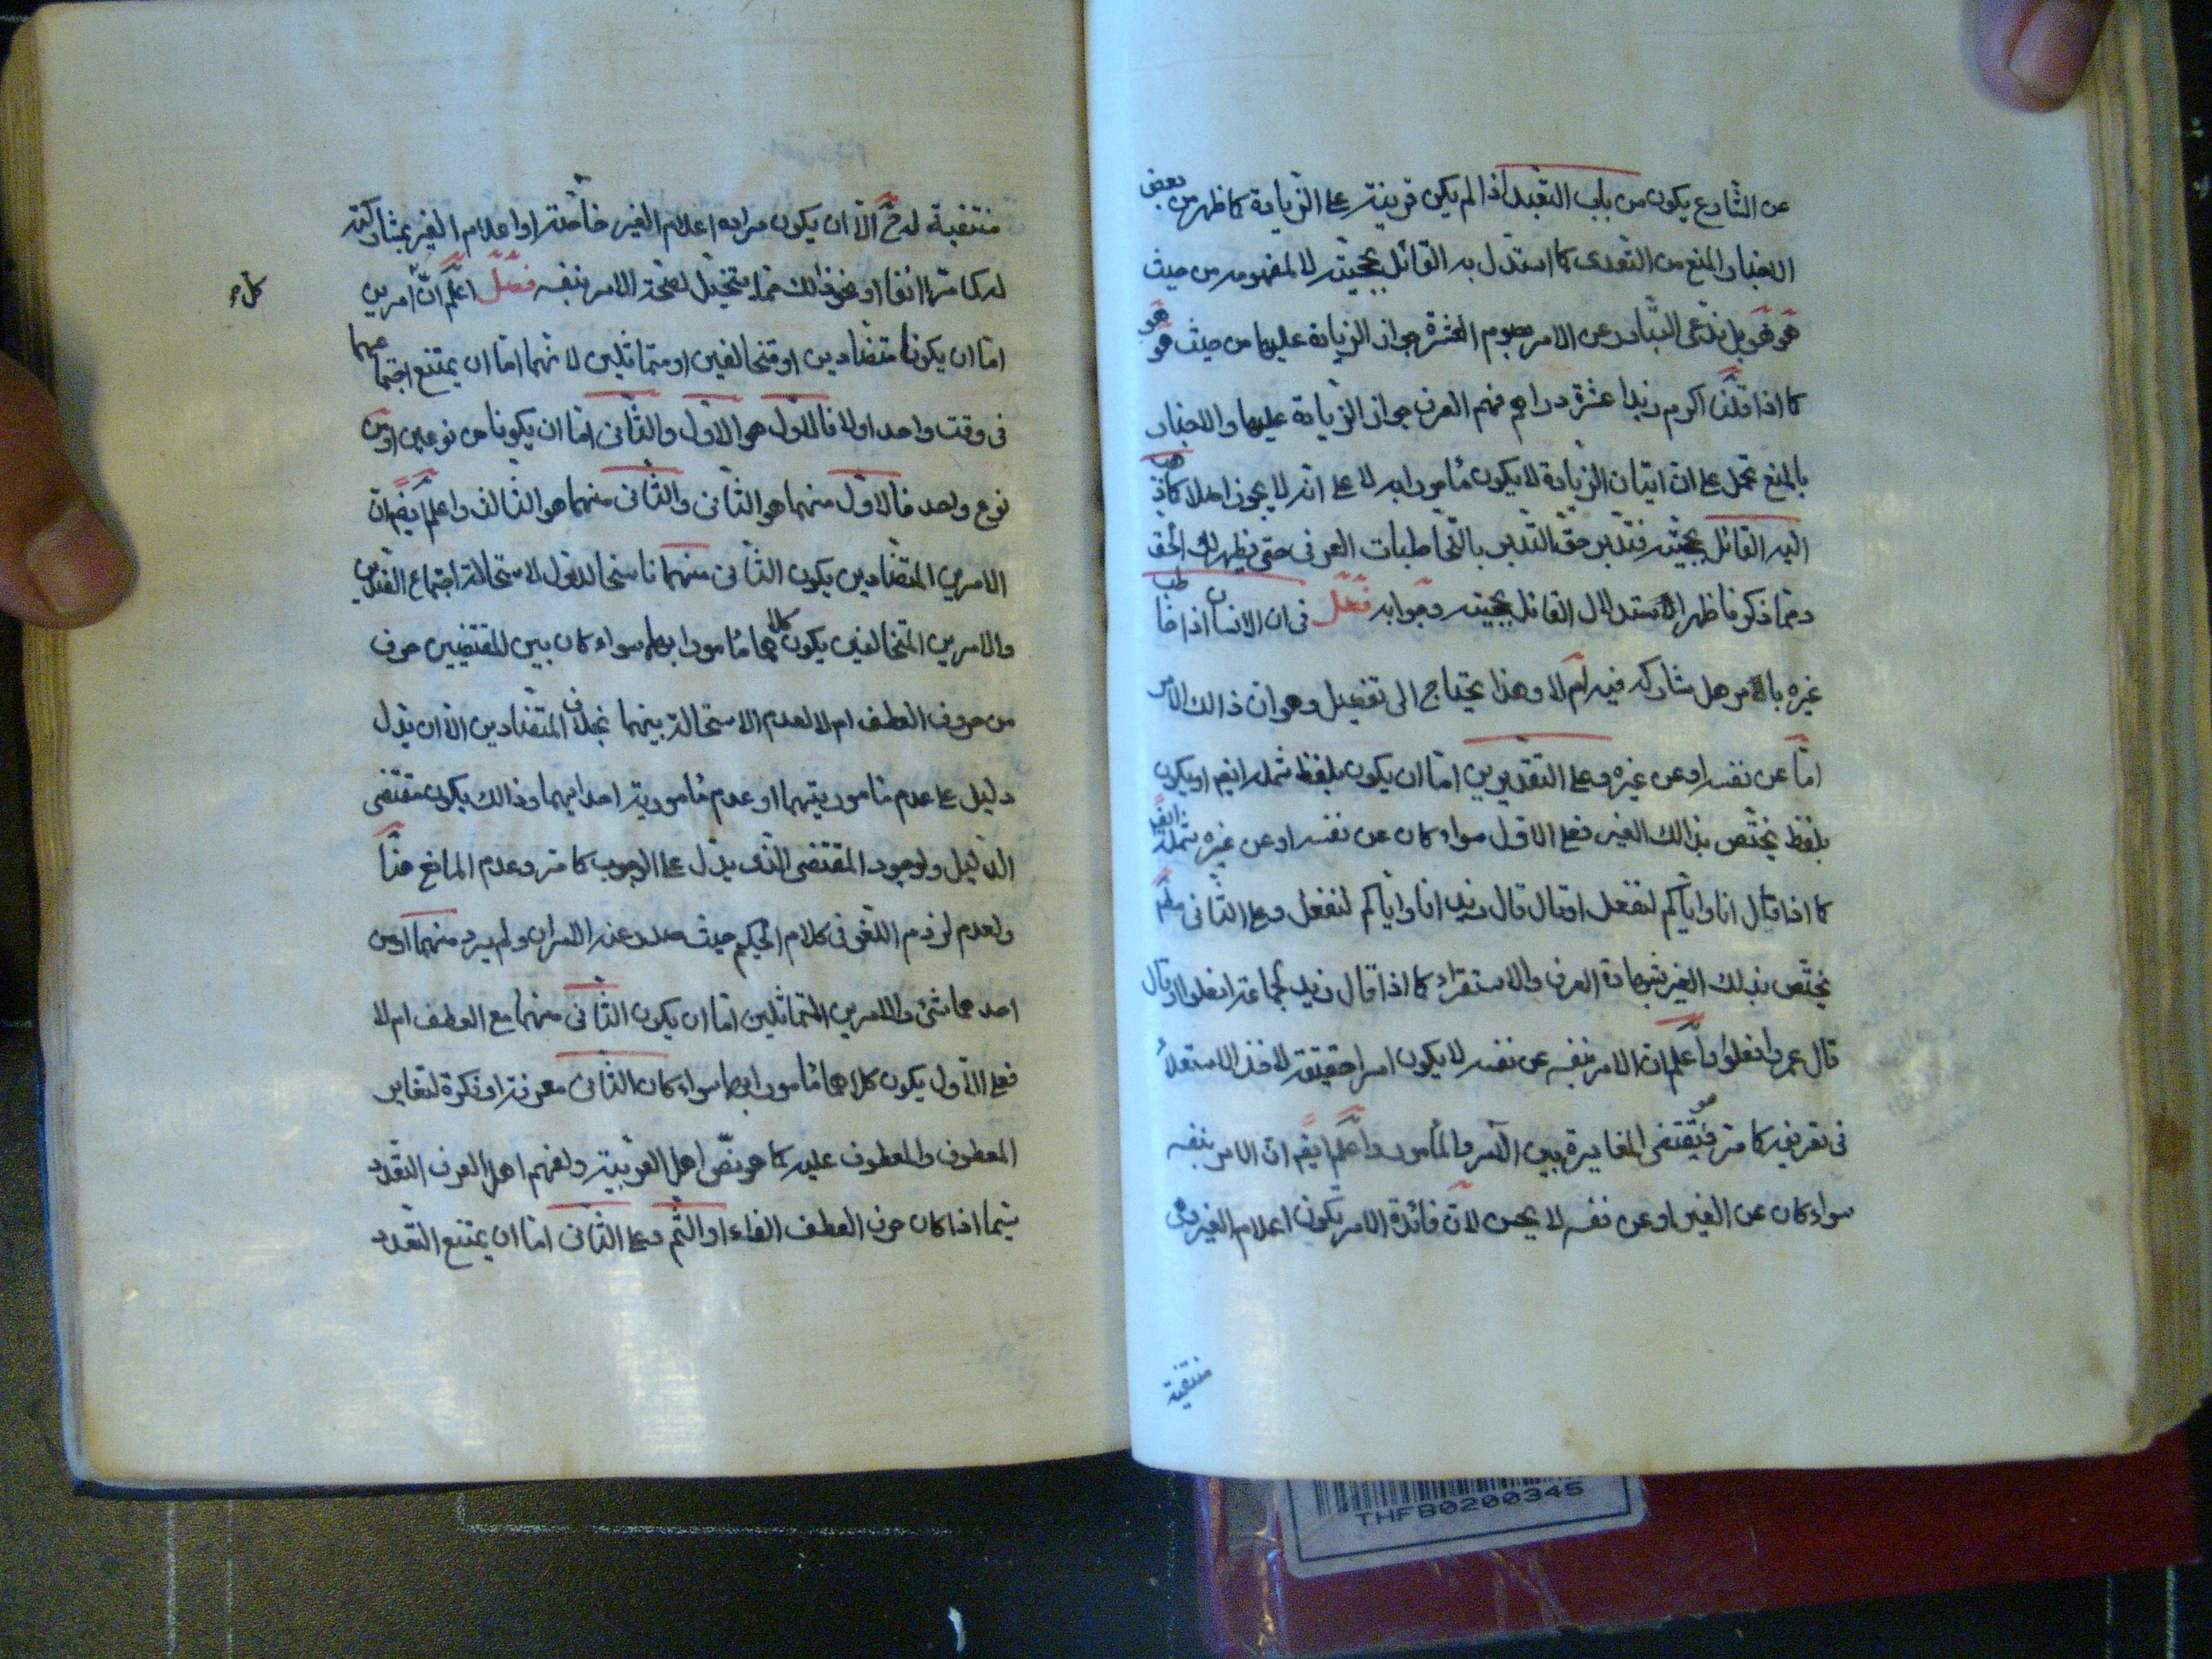 عن الشارع يكون من باب التعبد اذا لم يكن قرينة على الزيادة كما ظهر من بعض
الاخبار والمنع من التعدى كما استدل به القائل بحجيته لا لمفهومه من حيث
هو هو بل ندعى التبادر عن الامر بصوم العشرة جواز الزيادة عليها من حيث هو هو
كما اذا قلنا اكرم زيدا عشرة دراهم فهم العرف جواز الزيادة عليها والاخبار
بالمنع تحمل على ان اتيان الزيادة لا يكون مأمورا به لا على انه لا يجوز اصلا كما ذهب
اليه القائل بحجيته فتدبر حق التدبر بالتخاطبات العرفى حتى يظهر لك الحق
ومما ذكرنا ظهر الاستدلال القائل بحجيته وجوابه فصل فى ان الانسان اذا خاطب
غيره بالامر هل يشاركه فيه ام لا وهذا يحتاج الى تفصيل وهو ان ذالك الامر
اما عن نفسه او عن غيره وعلى التقديرين اما ان يكون بلفظ شمله ايضم او يكون
بلفظ يختص بذالك الغير فعلى الاول سواء كان عن نفسه او عن غيره شمله ايضا
كما اذا قال انا واياكم لنفعل او قال قال زيد انا واياكم لنفعل وعلى الثانى
يختص بذلك الغير بشهادة العرف والاستقراء كما اذا قال زيد لجماعة افعلوا او قال
قال عمرو افعلوا واعلم ان الامر بنفسه عن نفسه لا يكون امرا حقيقة لاخذ الاستعلاء
فى تعريفه كما مر فهو يقتضى المغايرة بين الآمر والمأمور واعلم ايضم ان الامر بنفسه
سواء كان عن الغير او عن نفسه لا يحسن لان فائدة الامر يكون اعلام الغير وهى
منتفية
منتفية له ح الا ان يكون مراده اعلام الغير خاصة او اعلام الغير بمشاركته
له كما مر انفا او نحو ذالك مما يتخيل لصحة الامر بنفسه فصل اعلم ان امرين
اما ان يكونا متضادين او متخالفين او متماثلين لانهما اما ان يمتنع اجتماعهما
فى وقت واحد اولا فالاول هو الاول والثانى اما ان يكونا من نوعين او من
نوع واحد فالاول منهما هو الثانى والثانى منهما هو الثالث واعلم ايضم ان
الامرين المتضادين يكون الثانى منهما ناسخا للاول لاستحالة اجتماع الضدين
والامرين المتخالفين يكون كلاهما مأمورا بهما سواء كان بين المقتضيين حرف
من حروف العطف ام لا لعدم الاستحالة بينهما بخلاف المتضادين الا ان يدل
دليل على عدم مأموريتهما او عدم مأمورية احدايهما وذالك يكون مقتضى
الدليل ولوجود المقتضى الذى يدل على الوجوب كما مر وعدم المانع هنا
ولعدم لزوم اللغو فى كلام الحكيم حيث صدر عنه الامران ولم يرد منهما او من
احدهما شئ والامرين المتماثلين اما ان يكون الثانى منهما مع العطف ام لا
فعلى الاول يكون كلاهما مأمورا بهما سواء كان الثانى معرفة او نكرة لتغاير
المعطوف والمعطوف عليه كما هو نص اهل العربية ولفهم اهل العرف التعدد
سيما اذا كان حرف العطف الفاء او الثم وعلى الثانى اما ان يمتنع التعدد
THFB0200345